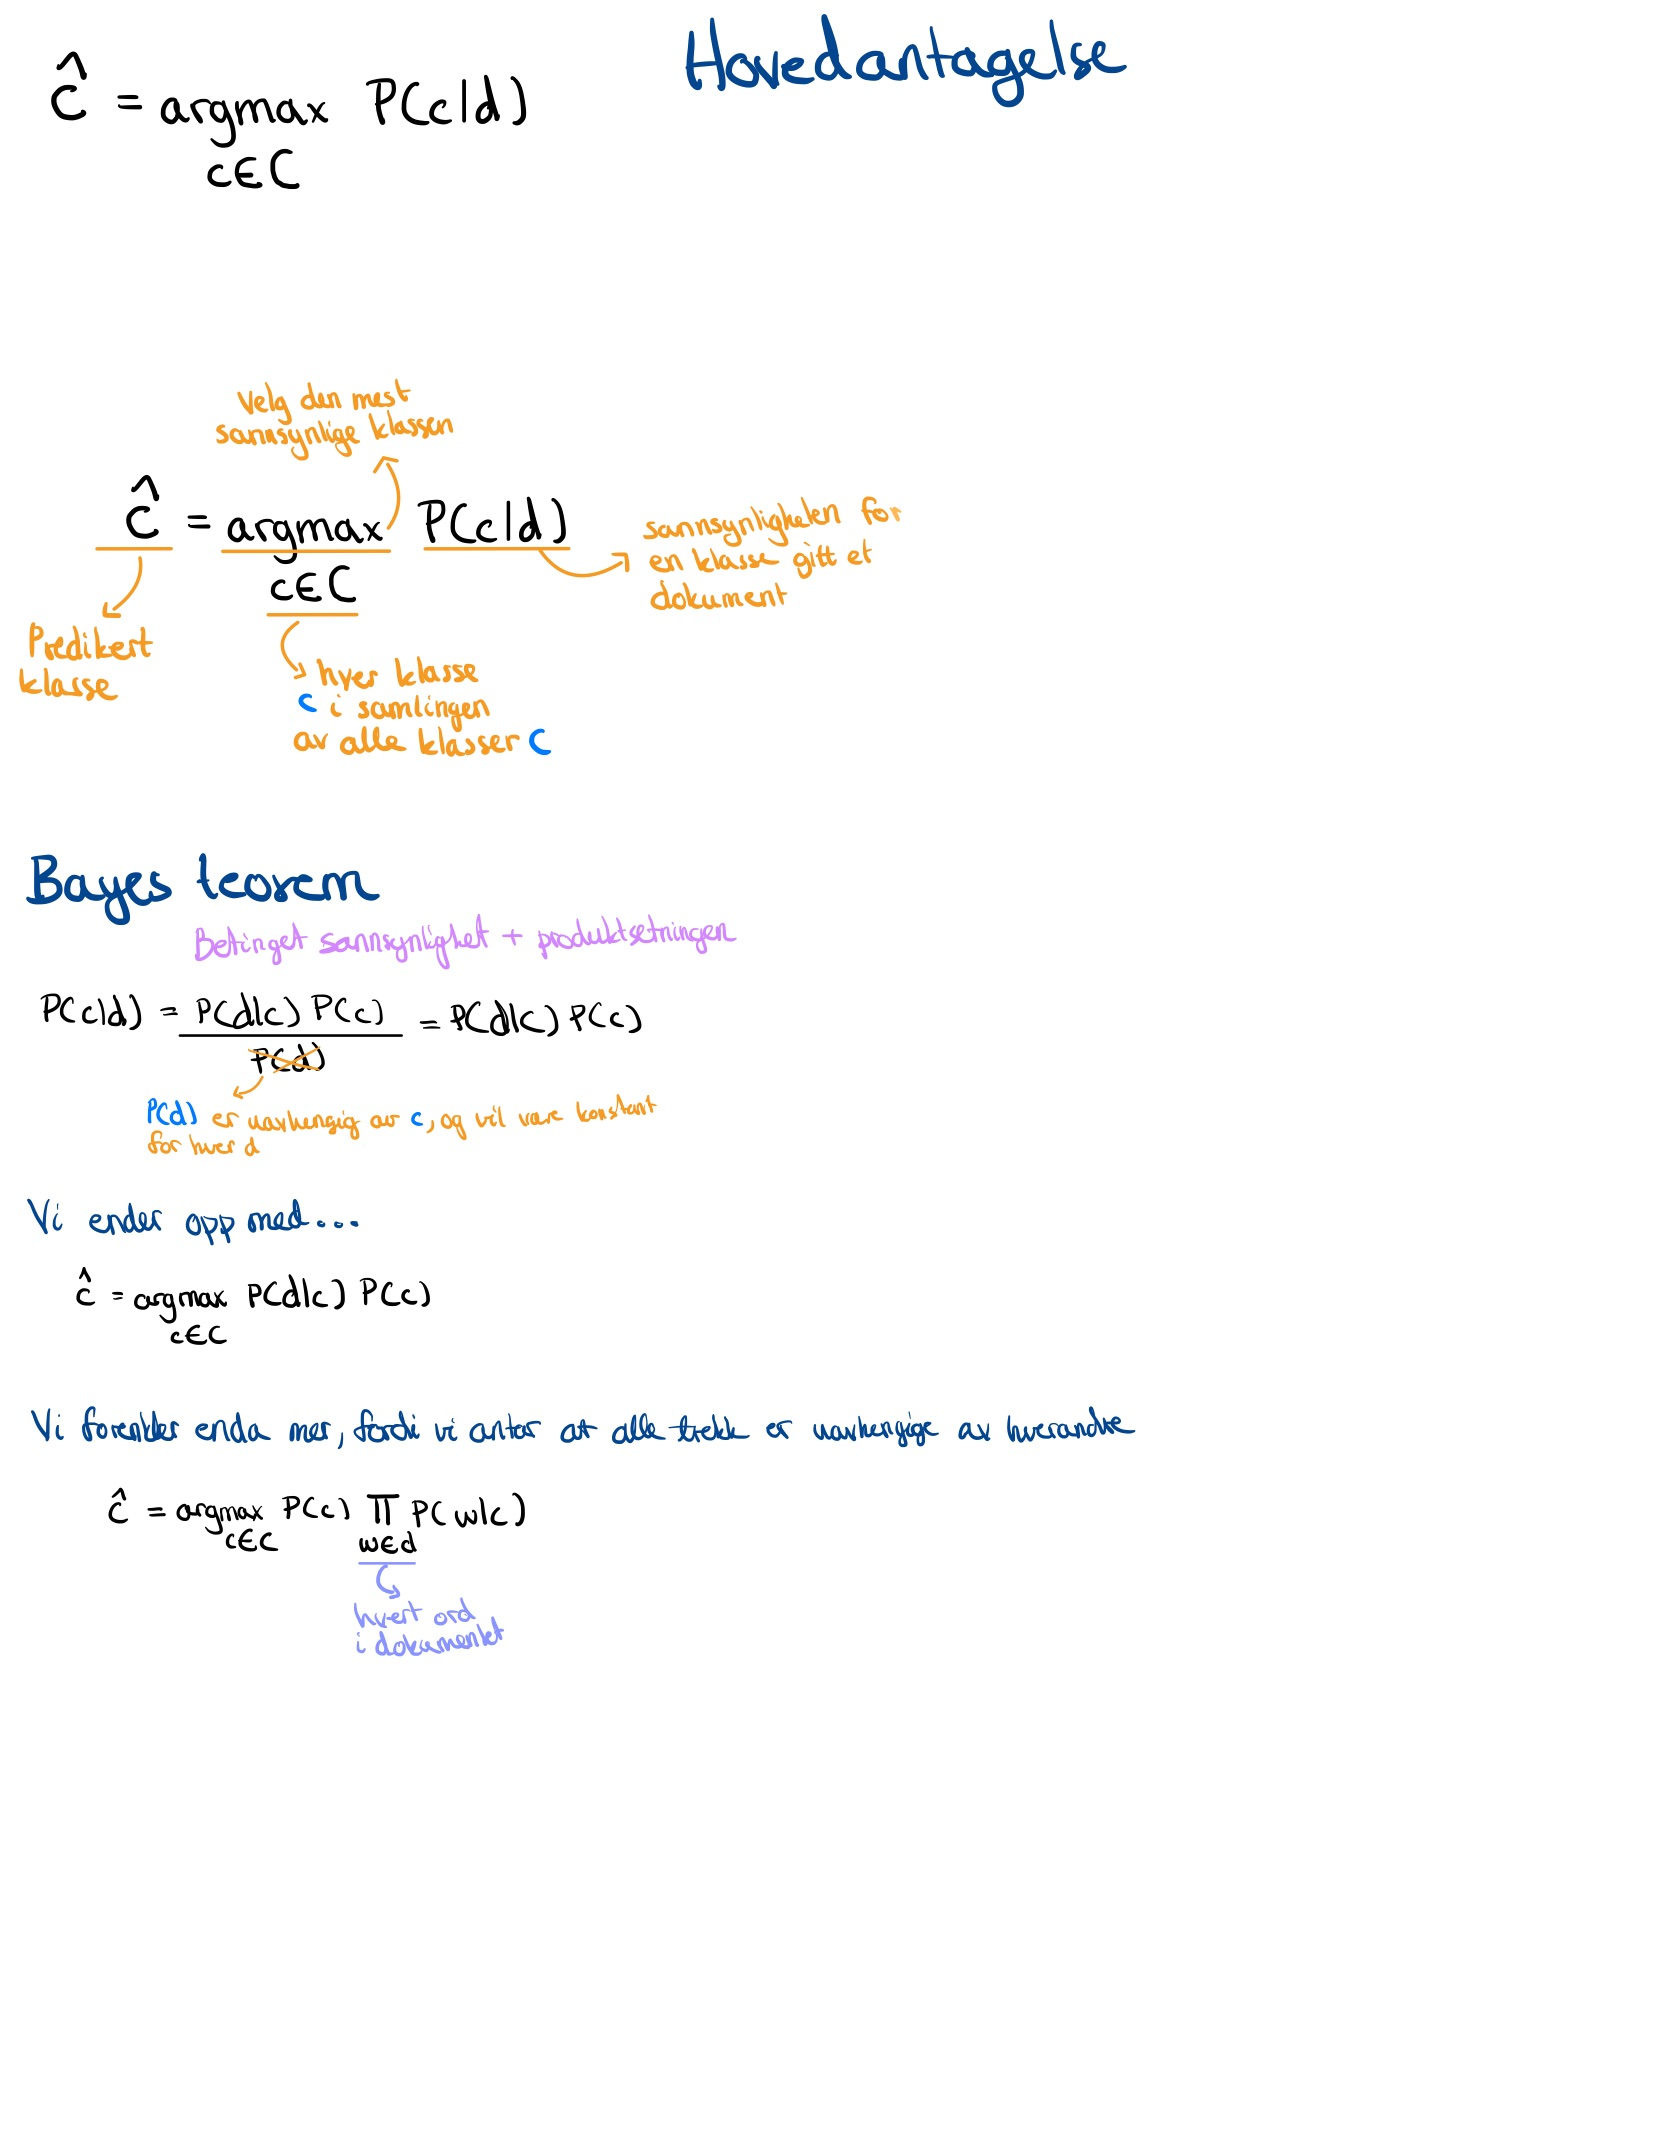 Hovedantagelse
ĉ = argmax P(c|d)
c∈C
Velg den mest
sannsynlige klassen
ĉ = argmax P(c|d)
c∈C
sannsynligheten for
en klasse gitt et
dokument
Predikert
klasse
hver klasse
c i samlingen
av alle klasser C
Bayes teorem
Betinget sannsynlighet + produktsetningen
P(c|d) = P(d|c) P(c) = P(d|c) P(c)
P(d)
P(d) er uavhengig av c, og vil være konstant
for hver d
Vi ender opp med...
ĉ = argmax P(d|c) P(c)
c∈C
Vi forenkler enda mer, fordi vi antar at alle trekk er uavhengige av hverandre
ĉ = argmax P(c) Π P(w|c)
c∈C w∈d
hvert ord
i dokumentet